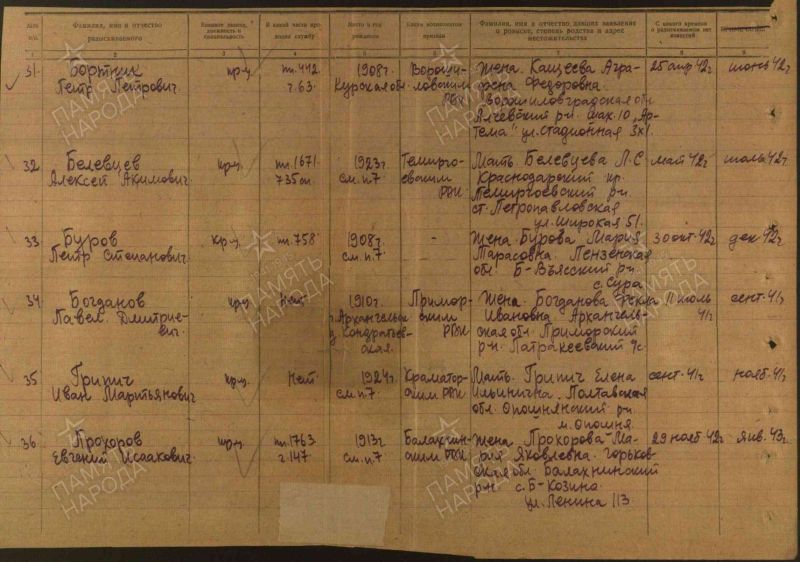 №№ п/п.
Фамилия, имя и отчество разыскиваемого
Воинское звание, должность и специальность
В какой части проходил службу
Место и год рождения
Каким военкоматом призван
Фамилия, имя и отчество давших заявление о розыске, степень родства и адрес местожительства
С какого времени о разыскиваемом нет известий
1 2 3 4 5 6 7 8 9
31. Бортник Петр Петрович.
кр-ц
пп. 442 ч. 63.
1908г. Курская обл
Вороши-
ловским
РВК
Жена. Кащеева Агра-
фена Федоровна.
Ворошиловградская обл.
Алчевский р-н шах. 10 „Ар-
тема" ул. Стадионная 3к1.
25 апр 42г
июнь 42г
32 Белевцев
Алексей Акимович
кр-ц.
пп. 1671
735 сп.
1923г.
см. п. 7
Темирго-
евским
РВК
Мать Белевцева Л. С
Краснодарский кр.
Темиргоевский р-н
ст. Петропавловская
ул. Широкая 51.
май 42г
33 Буров
Петр Степанович.
кр-ц.
пп. 758
1908г.
см. п. 7
-
Жена. Бурова Мария
Тарасовна. Пензенская
обл Б-Вьясский р-н
с. Сура
30 окт. 42г
дек. 42г
34 Богданов
Павел Дмитрие-
вич.
кр-ц
Нет
1910г.
г. Архангельск
д. Кондратьев-
ская.
Примор-
ским
РВК
Жена. Богданова Фекла
Ивановна Архангель-
ская обл. Приморский
р-н. Патракеевский с/с.
11 июль
41г
сент. 41г
35 Грипич
Иван Мартьянович
кр-ц.
Нет.
1924г.
см. п. 7
Краматор-
ским РВК
Мать. Грипич Елена
Ильинична. Полтавская
обл. Опошнянский р-н
м. Опошня.
сент. 41г
нояб. 41г
36 Прохоров
Евгений Исаакович.
кр-ц.
пп. 1763
ч. 147.
1913г
см. п. 7
Балахнин-
ским РВК
Жена Прохорова Ма-
рия Яковлевна. Горьков-
ская обл. Балахнинский
р-н с. Б-Козино.
ул. Ленина 113.
29 нояб 42г
янв. 43г.
ПАМЯТЬ НАРОДА